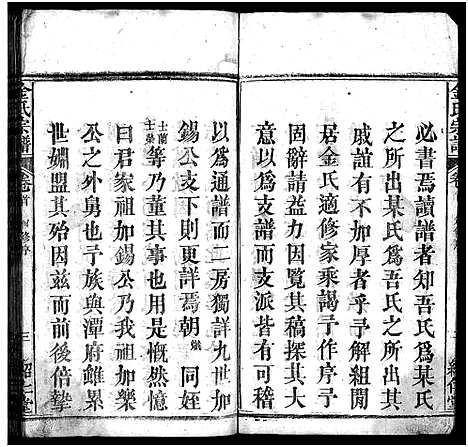 金氏宗譜
卷首
必書焉讀譜者知吾氏爲某氏
之所出某氏爲吾氏之所出其
戚誼有不加厚者乎予解組閒
居金氏適修家乘謁予作序予
固辭請力因覧其稿探其大
意以爲通譜而支派皆有其
以爲通譜而二房獨詳九世加
錫公支下則更詳焉朝榮同姪
士蘭士榮等乃董其事也用是憮然
曰君家祖加錫公乃我祖加樂
公之外舅也予族與潭府雖累
世媾盟其殆因兹而前後倍摯
金氏宗譜
卷首
三
紹仁堂